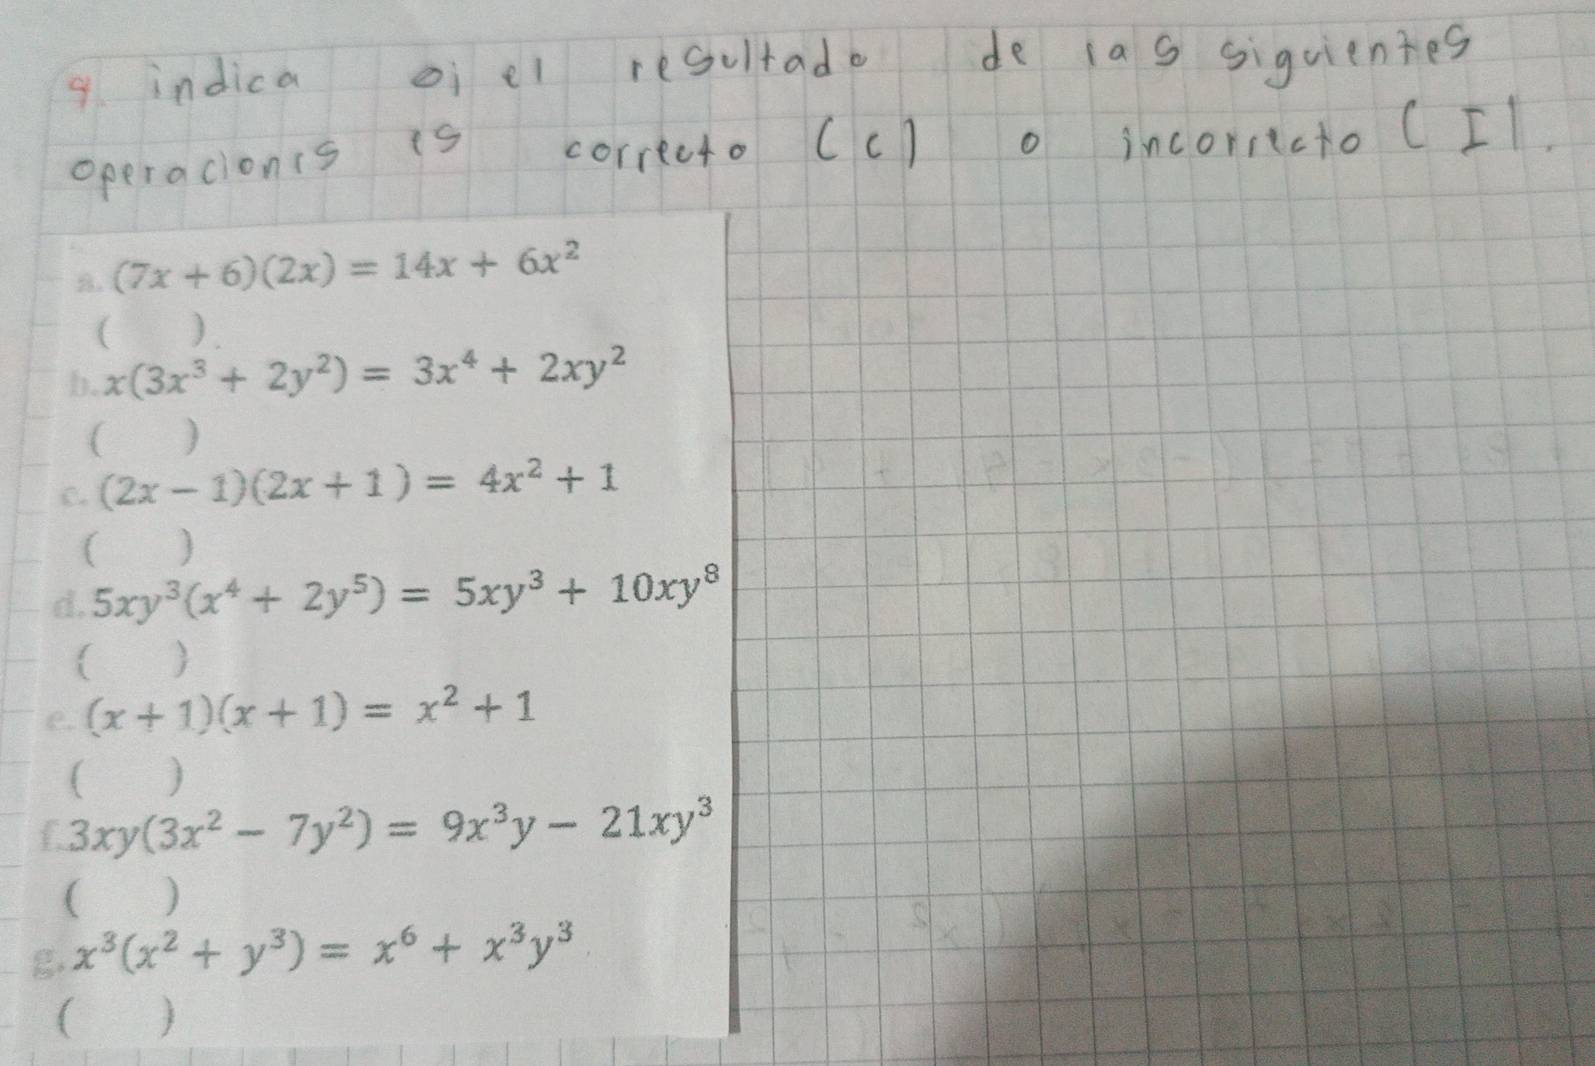 9. indica si el resultado de las siguientes
operaciones es correcto (c) o incorrecto (I).
a. (7x + 6)(2x) = 14x + 6x²
( ).
b. x(3x³ + 2y²) = 3x⁴ + 2xy²
( )
c. (2x − 1)(2x + 1) = 4x² + 1
( )
d. 5xy³(x⁴ + 2y⁵) = 5xy³ + 10xy⁸
( )
e. (x + 1)(x + 1) = x² + 1
( )
f. 3xy(3x² − 7y²) = 9x³y − 21xy³
( )
g. x³(x² + y³) = x⁶ + x³y³
( )